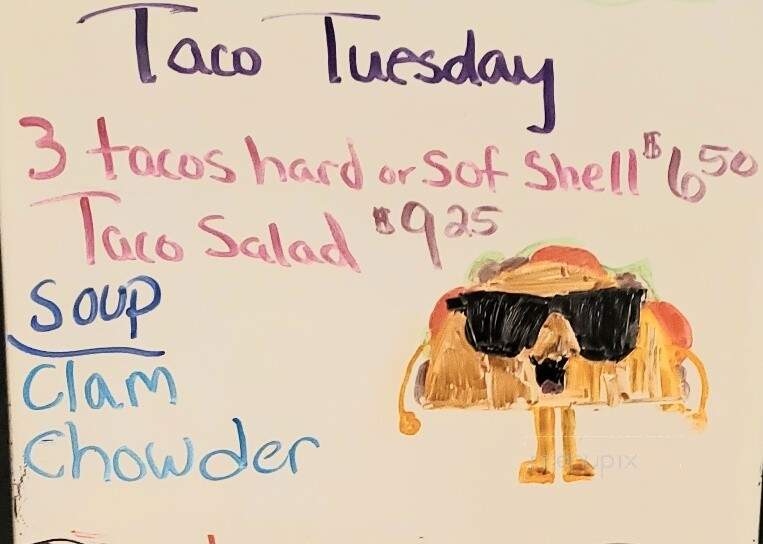 Taco Tuesday
3 tacos hard or Sof Shell $6.50
Taco Salad $9.25
Soup
Clam
Chowder